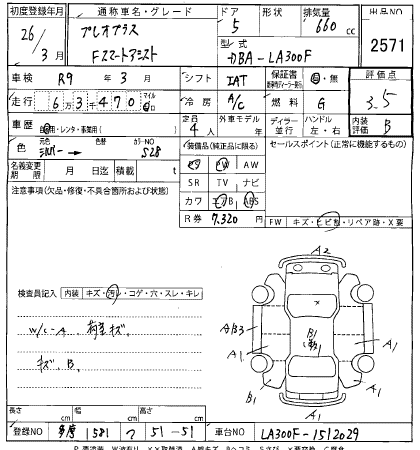 初度登録年月 通称車名・グレード ドア 形状 排気量 出品NO
26/3月 プレオプラス Fスマートアシスト 5 660 cc 2571
型式 DBA-LA300F
車検 R9年3月 シフト IAT 保証書 有・無 評価点
走行 6万3千470 マイル 冷房 A/C 燃料 G 3.5
車歴 自家用・レンタ・事業用( ) 定員 4人 外車モデル 年 ディーラー 並行 ハンドル 左・右 内装評価 B
色 元色 シルバー 色替 カラーNO S28 装備品(純正品に限る) セールスポイント(正常に機能するもの)
名義変更期限 月 日迄 積載 t PS PW AW
注意事項(欠品・修復・不具合箇所および状態) SR TV ナビ
カワ エアB ABS
R券 7.320円 FW キズ・ヒビ割・リペア跡・X要
A2
検査員記入 内装 キズ・汚レ・コゲ・穴・スレ・キレ
W/C-A キズ、
A B3
B1
A1 A1
キズ、B、
B1 A1
A1
長さ cm 幅 cm 高さ cm
登録NO 多摩 1581 つ 51-51 車台NO LA300F-1512029